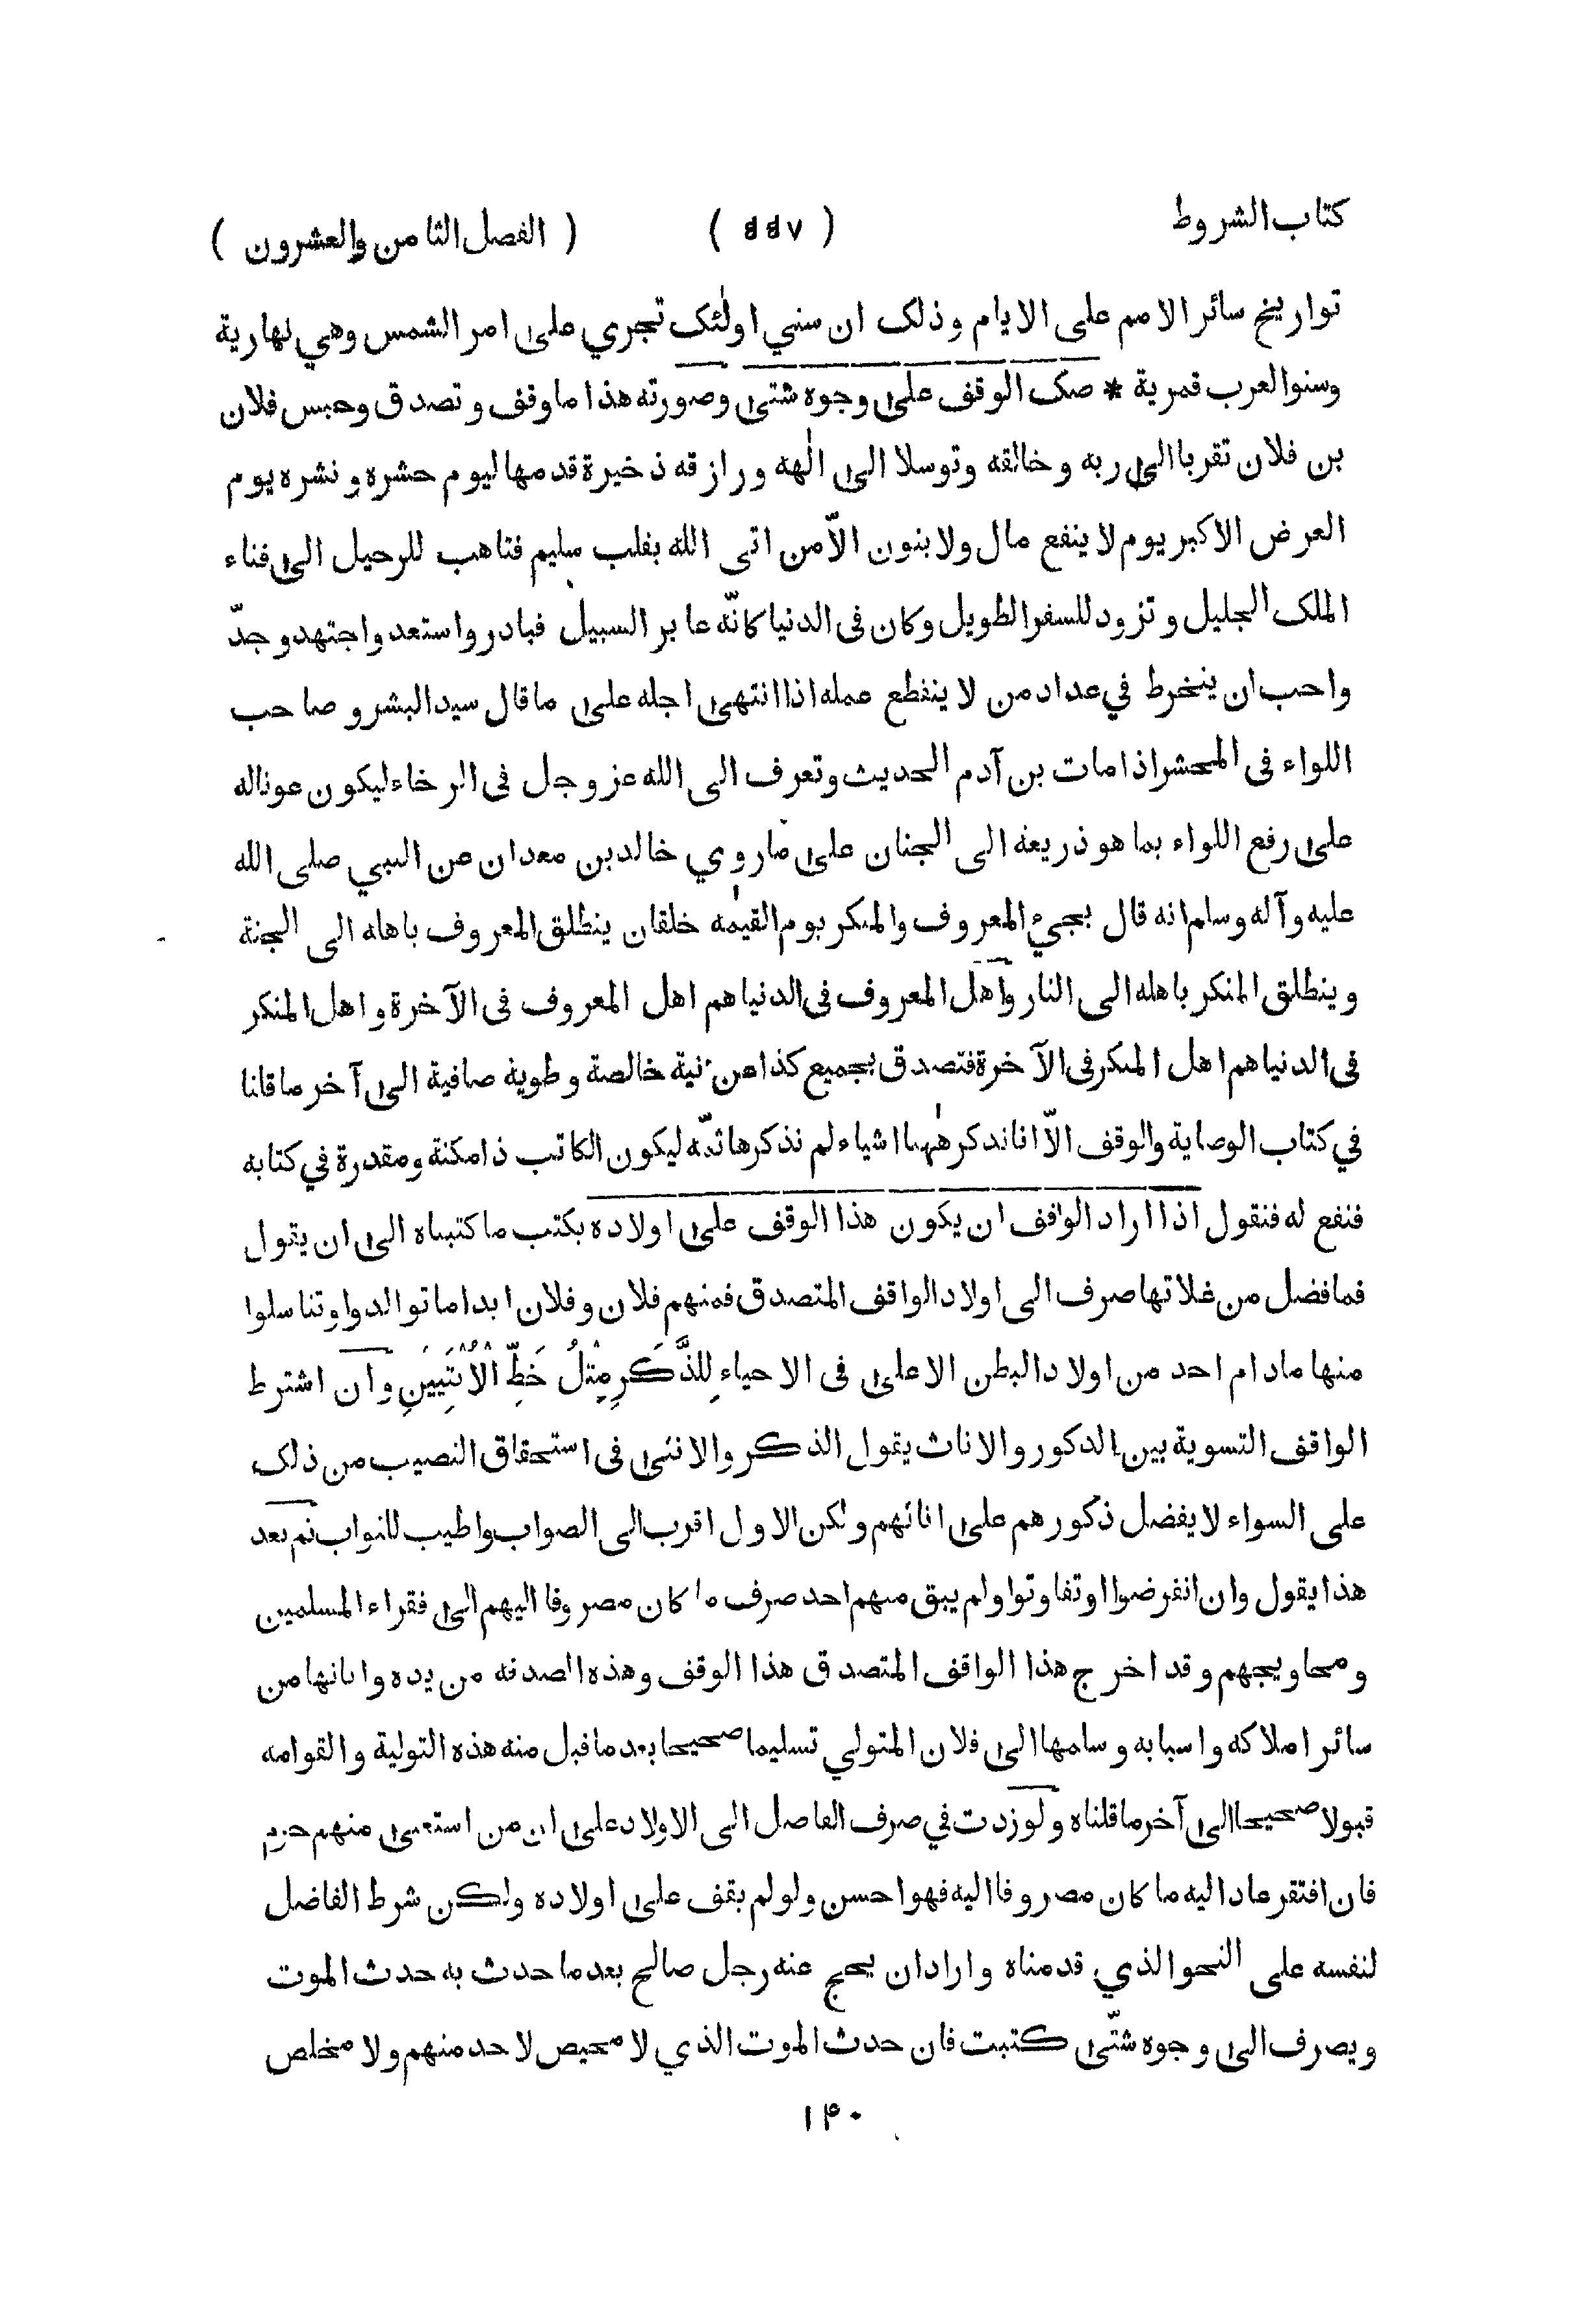 كتاب الشروط ( ٥٥٧ ) ( الفصل الثامن والعشرون )
تواريخ سائر الامم على الايام وذلك ان سني اولٰئك تجري على امر الشمس وهي نهارية
وسنوا العرب قمرية * صك الوقف على وجوه شتى وصورته هذا ما وقف وتصدق وحبس فلان
بن فلان تقربا الى ربه وخالقه وتوسلا الى الٰهه ورازقه ذخيرة قدمها ليوم حشره ونشره يوم
العرض الاكبر يوم لا ينفع مال ولا بنون الّا من اتى الله بقلب سليم فتاهب للرحيل الى فناء
الملك الجليل وتزود للسفر الطويل وكان في الدنيا كانّه عابر السبيل فبادر واستعد واجتهد وجدّ
واحب ان ينخرط في عداد من لا ينقطع عمله اذا انتهى اجله على ما قال سيد البشر وصاحب
اللواء في المحشر اذا مات بن آدم الحديث وتعرف الى الله عز وجل في الرخاء ليكون عونا له
على رفع اللواء بما هو ذريعة الى الجنان على ما روي خالد بن معدان عن النبي صلى الله
عليه وآله وسلم انه قال يجيء المعروف والمنكر يوم القيٰمة خلقان ينطلق المعروف باهله الى الجنة
وينطلق المنكر باهله الى النار واهل المعروف في الدنيا هم اهل المعروف في الآخرة واهل المنكر
في الدنيا هم اهل المنكر في الآخرة فتصدق بجميع كذا عن نية خالصة وطوية صافية الى آخر ما قلنا
في كتاب الوصاية والوقف الّا انا نذكر هٰهنا اشياء لم نذكرها ثمّه ليكون الكاتب ذا مكنة ومقدرة في كتابه
فنفع له فنقول اذا اراد الواقف ان يكون هذا الوقف على اولاده يكتب ما كتبناه الى ان يقول
فما فضل من غلاتها صرف الى اولاد الواقف المتصدق فمنهم فلان وفلان ابدا ما توالدوا وتناسلوا
منها مادام احد من اولاد البطن الاعلى في الاحياء لِلذَّكَرِ مِثْلُ حَظِّ الْاُنْثَيَيْنِ وان اشترط
الواقف التسوية بين الذكور والاناث يقول الذكر والانثى في استحقاق النصيب من ذلك
على السواء لا يفضل ذكورهم على اناثهم ولكن الاول اقرب الى الصواب واطيب للثواب ثم بعد
هذا يقول وان انقرضوا او تفاوتوا ولم يبق منهم احد صرف ما كان مصروفا اليهم الى فقراء المسلمين
ومحاويجهم وقد اخرج هذا الواقف المتصدق هذا الوقف وهذه الصدقة من يده وابانها من
سائر املاكه واسبابه وسلمها الى فلان المتولي تسليما صحيحا بعد ما قبل منه هذه التولية والقوامه
قبولا صحيحا الى آخر ما قلناه ولو زدت في صرف الفاضل الى الاولاد على ان من استغنى منهم حرم
فان افتقر عاد اليه ما كان مصروفا اليه فهو احسن ولو لم يقف على اولاده ولكن شرط الفاضل
لنفسه على النحو الذي قدمناه واراد ان يحج عنه رجل صالح بعد ما حدث به حدث الموت
ويصرف الى وجوه شتّى كتبت فان حدث الموت الذي لا محيص لاحد منهم ولا مخلص
١٤٠